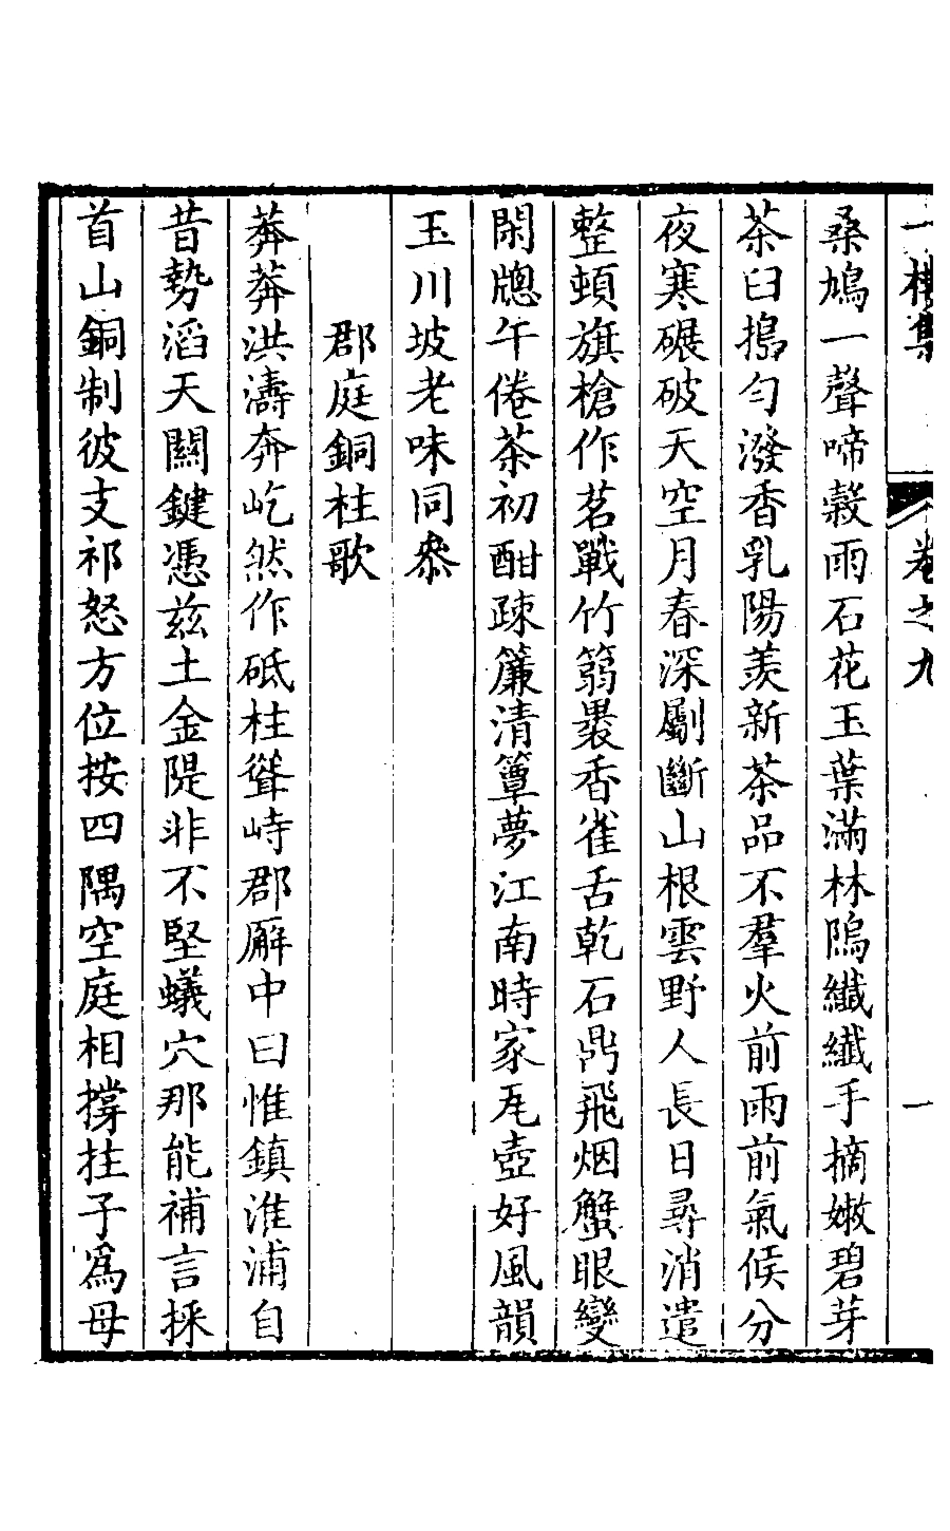 一樓集 卷之九 一
桑鳩一聲啼穀雨石花玉葉滿林隖纖纖手摘嫩碧芽
茶臼搗勻潑香乳陽羨新茶品不羣火前雨前氣候分
夜寒碾破天空月春深劚斷山根雲野人長日尋消遣
整頓旗槍作茗戰竹篛褁香雀舌乾石鼎飛烟蟹眼變
閑牕午倦茶初酣疎簾清簟夢江南時家瓦壺好風韻
玉川坡老味同叅
郡庭銅柱歌
莾莾洪濤奔屹然作砥柱聳峙郡廨中曰惟鎮淮浦自
昔勢滔天關鍵憑兹土金隄非不堅蟻穴那能補言採
首山銅制彼支祁怒方位按四隅空庭相撐拄子爲母